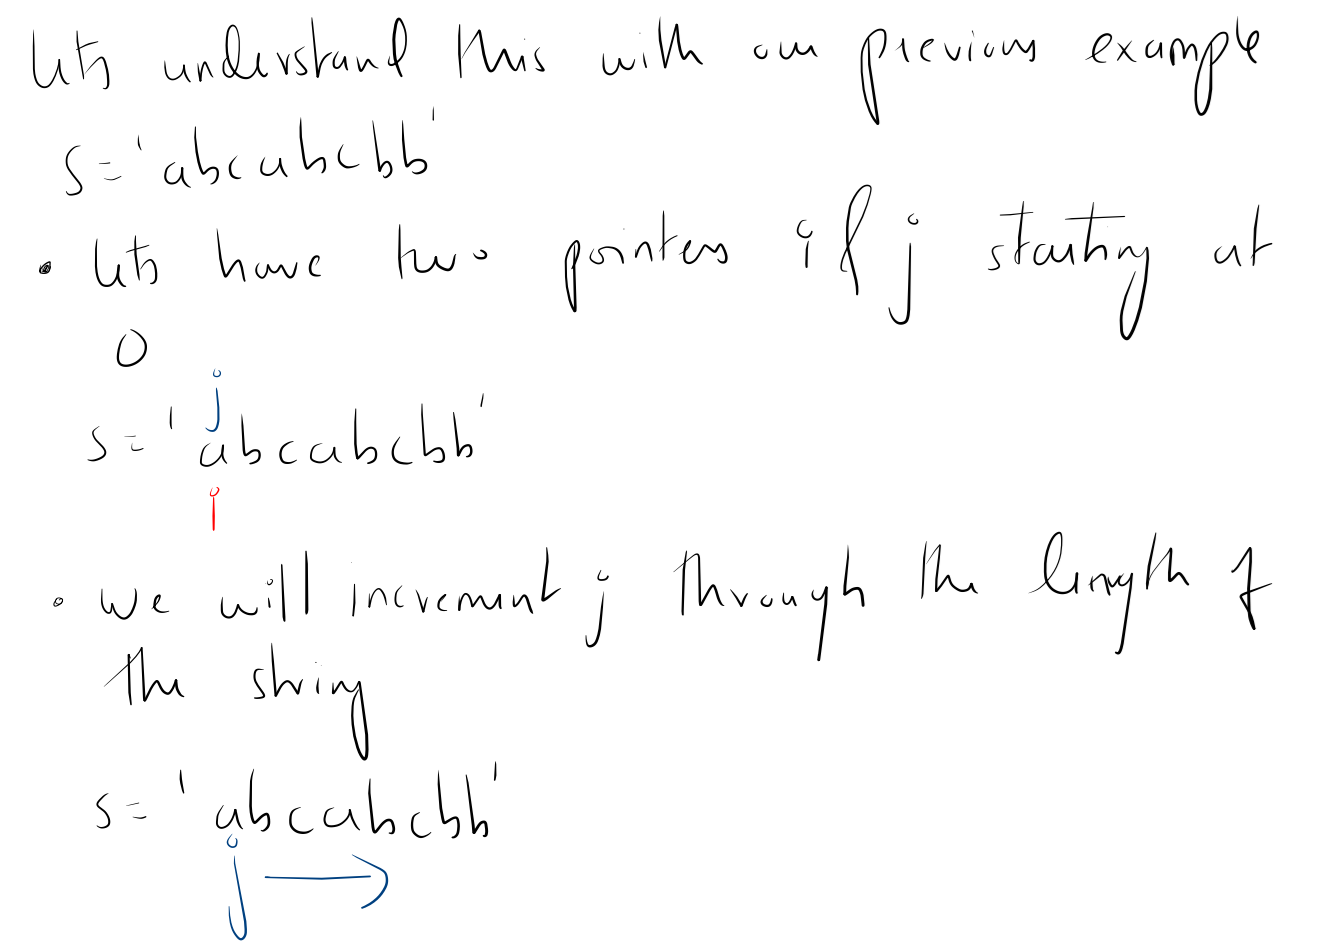 lets understand this with our previous example
s = 'abcabcbb'
• lets have two pointers i & j starting at
0
j
s = 'abcabcbb'
i
• we will increment j through the length of
the string
s = 'abcabcbb'
j →